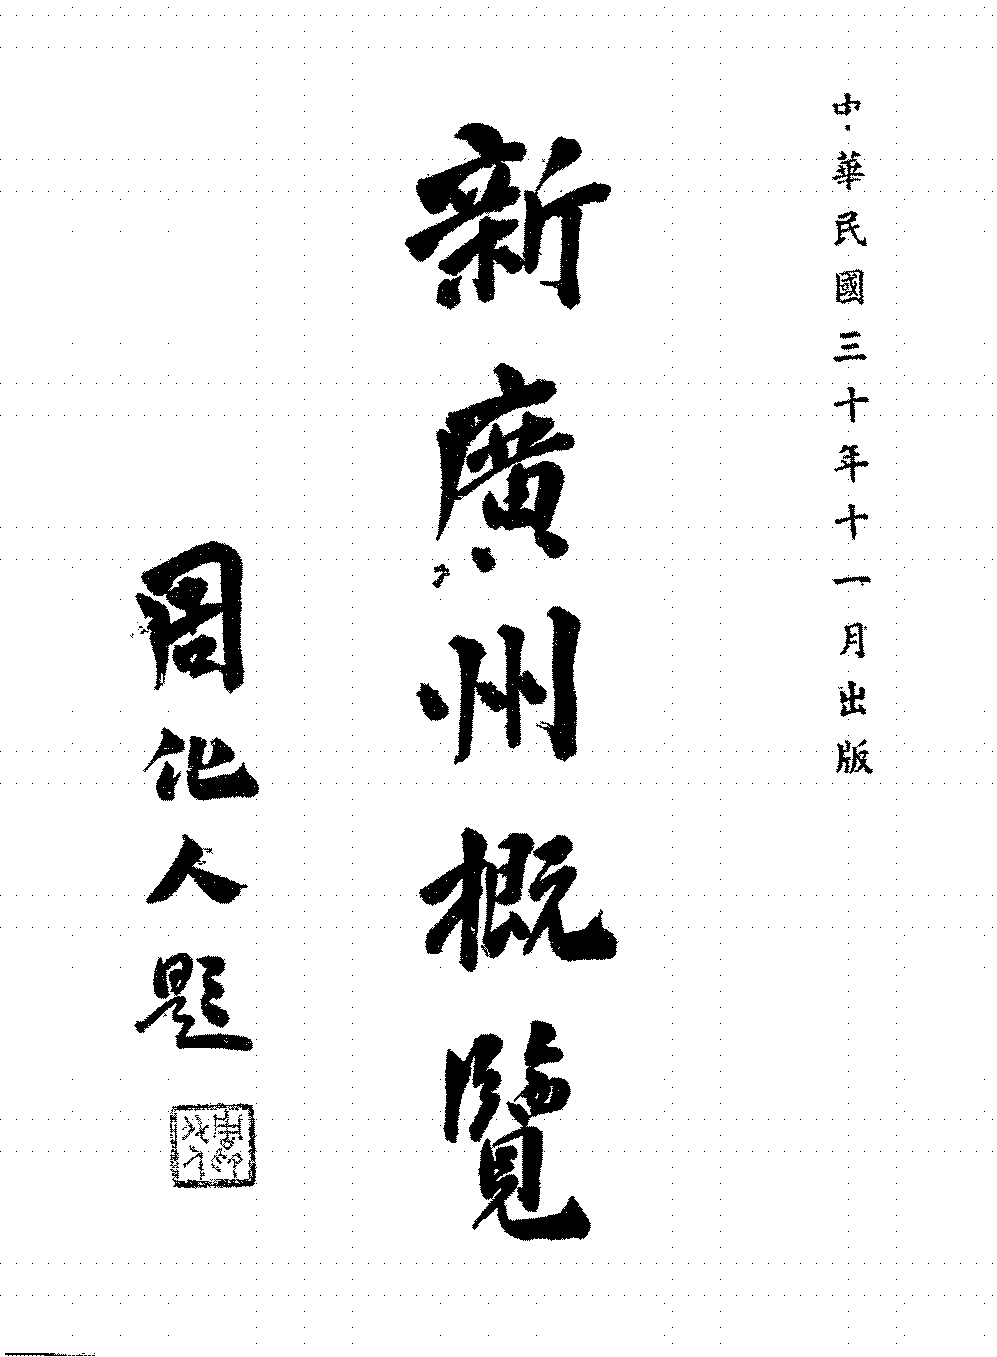 中華民國三十年十一月出版
新廣州概覽
周化人題